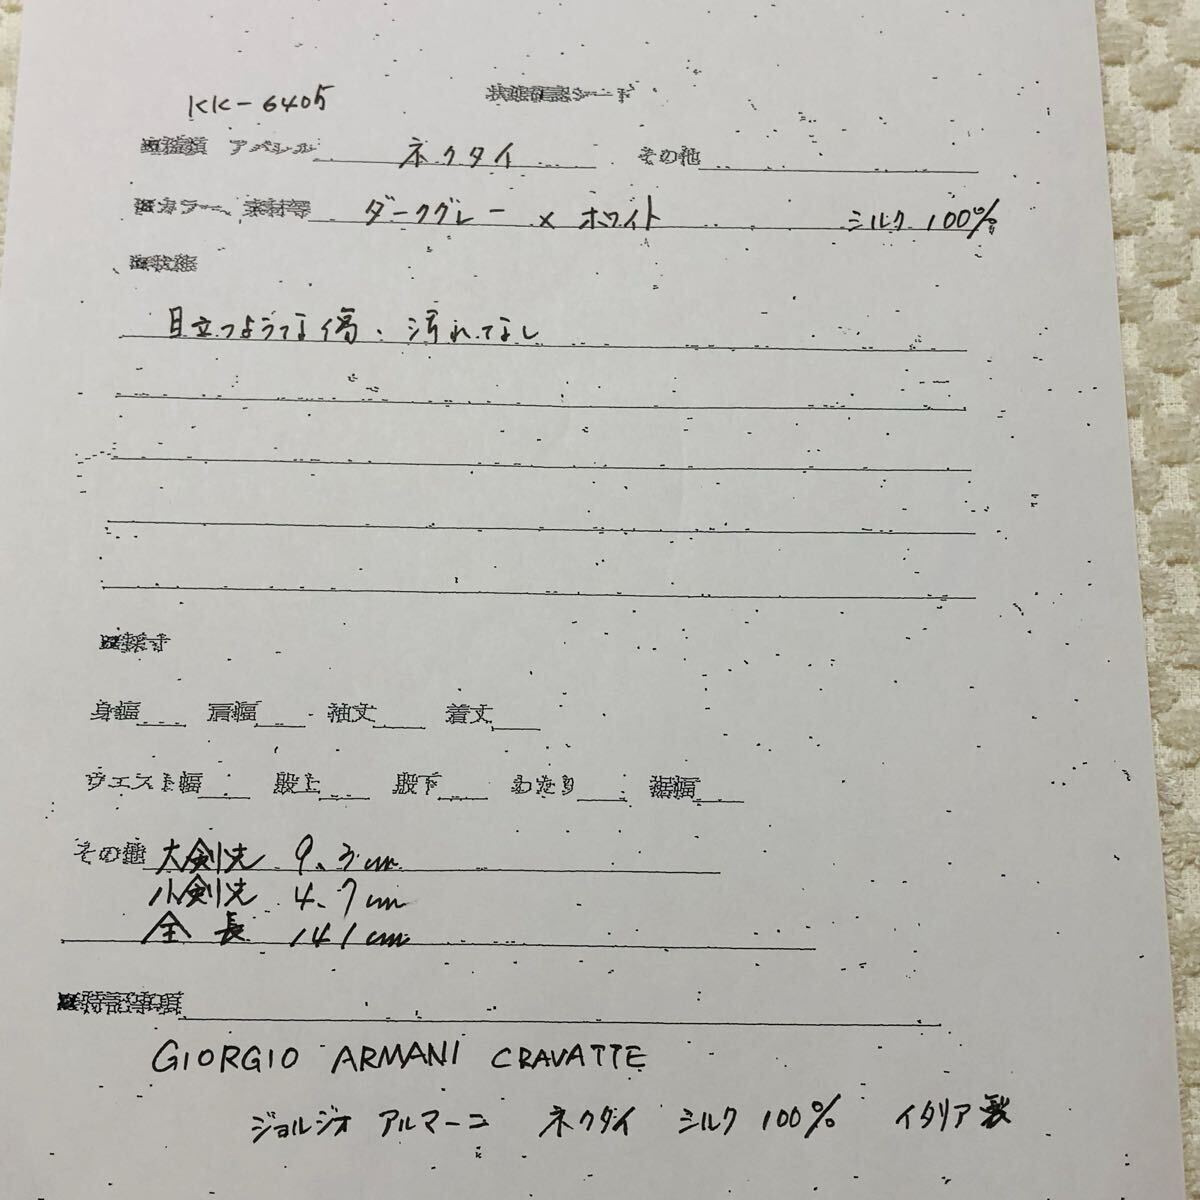 KK-6405 状態確認シート
■種類 アパレル ネクタイ その他
■カラー、素材等 ダークグレー × ホワイト シルク 100%
■状態
目立つような傷・汚れなし
■採寸
身幅 肩幅 袖丈 着丈
ウエスト幅 股上 股下 わたり 裾幅
その他 大剣先 9.3cm
小剣先 4.7cm
全長 141cm
■特記事項
GIORGIO ARMANI CRAVATTE
ジョルジオ アルマーニ ネクタイ シルク 100% イタリア製